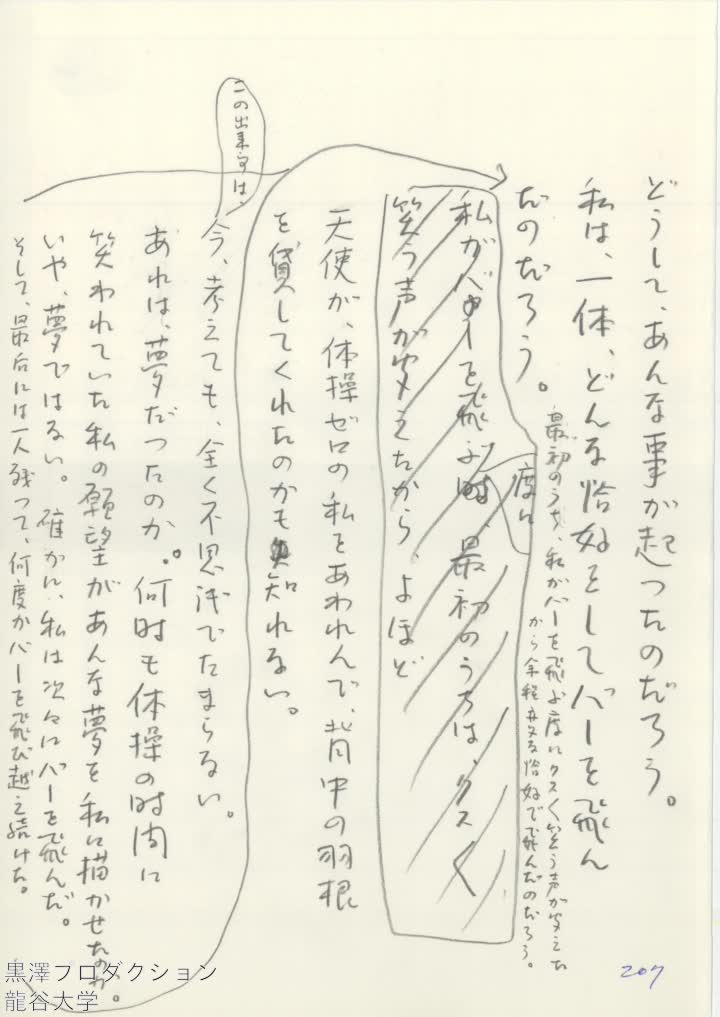 どうして、あんな事が起ったのだろう。
私は、一体、どんな恰好をしてバーを飛ん
だのだろう。
最初のうち、私がバーを飛ぶ度にクスく笑う声が聞えた
から余程変な恰好で飛んだのだろう。
度に
私がバーを飛ぶ時、最初のうちは、クスく
笑う声が聞えたから、よほど
天使が、体操ゼロの私をあわれんで、背中の羽根
を貸してくれたのかも知れない。
この出来事は、
今、考えても、全く不思議でたまらない。
あれは、夢だったのか。何時も体操の時間に
笑われていた私の願望があんな夢を私に描かせたのか。
いや、夢ではない。確かに、私は次々にバーを飛んだ。
そして、最后には一人残って、何度かバーを飛び越え続けた。
207
黒澤プロダクション
龍谷大学